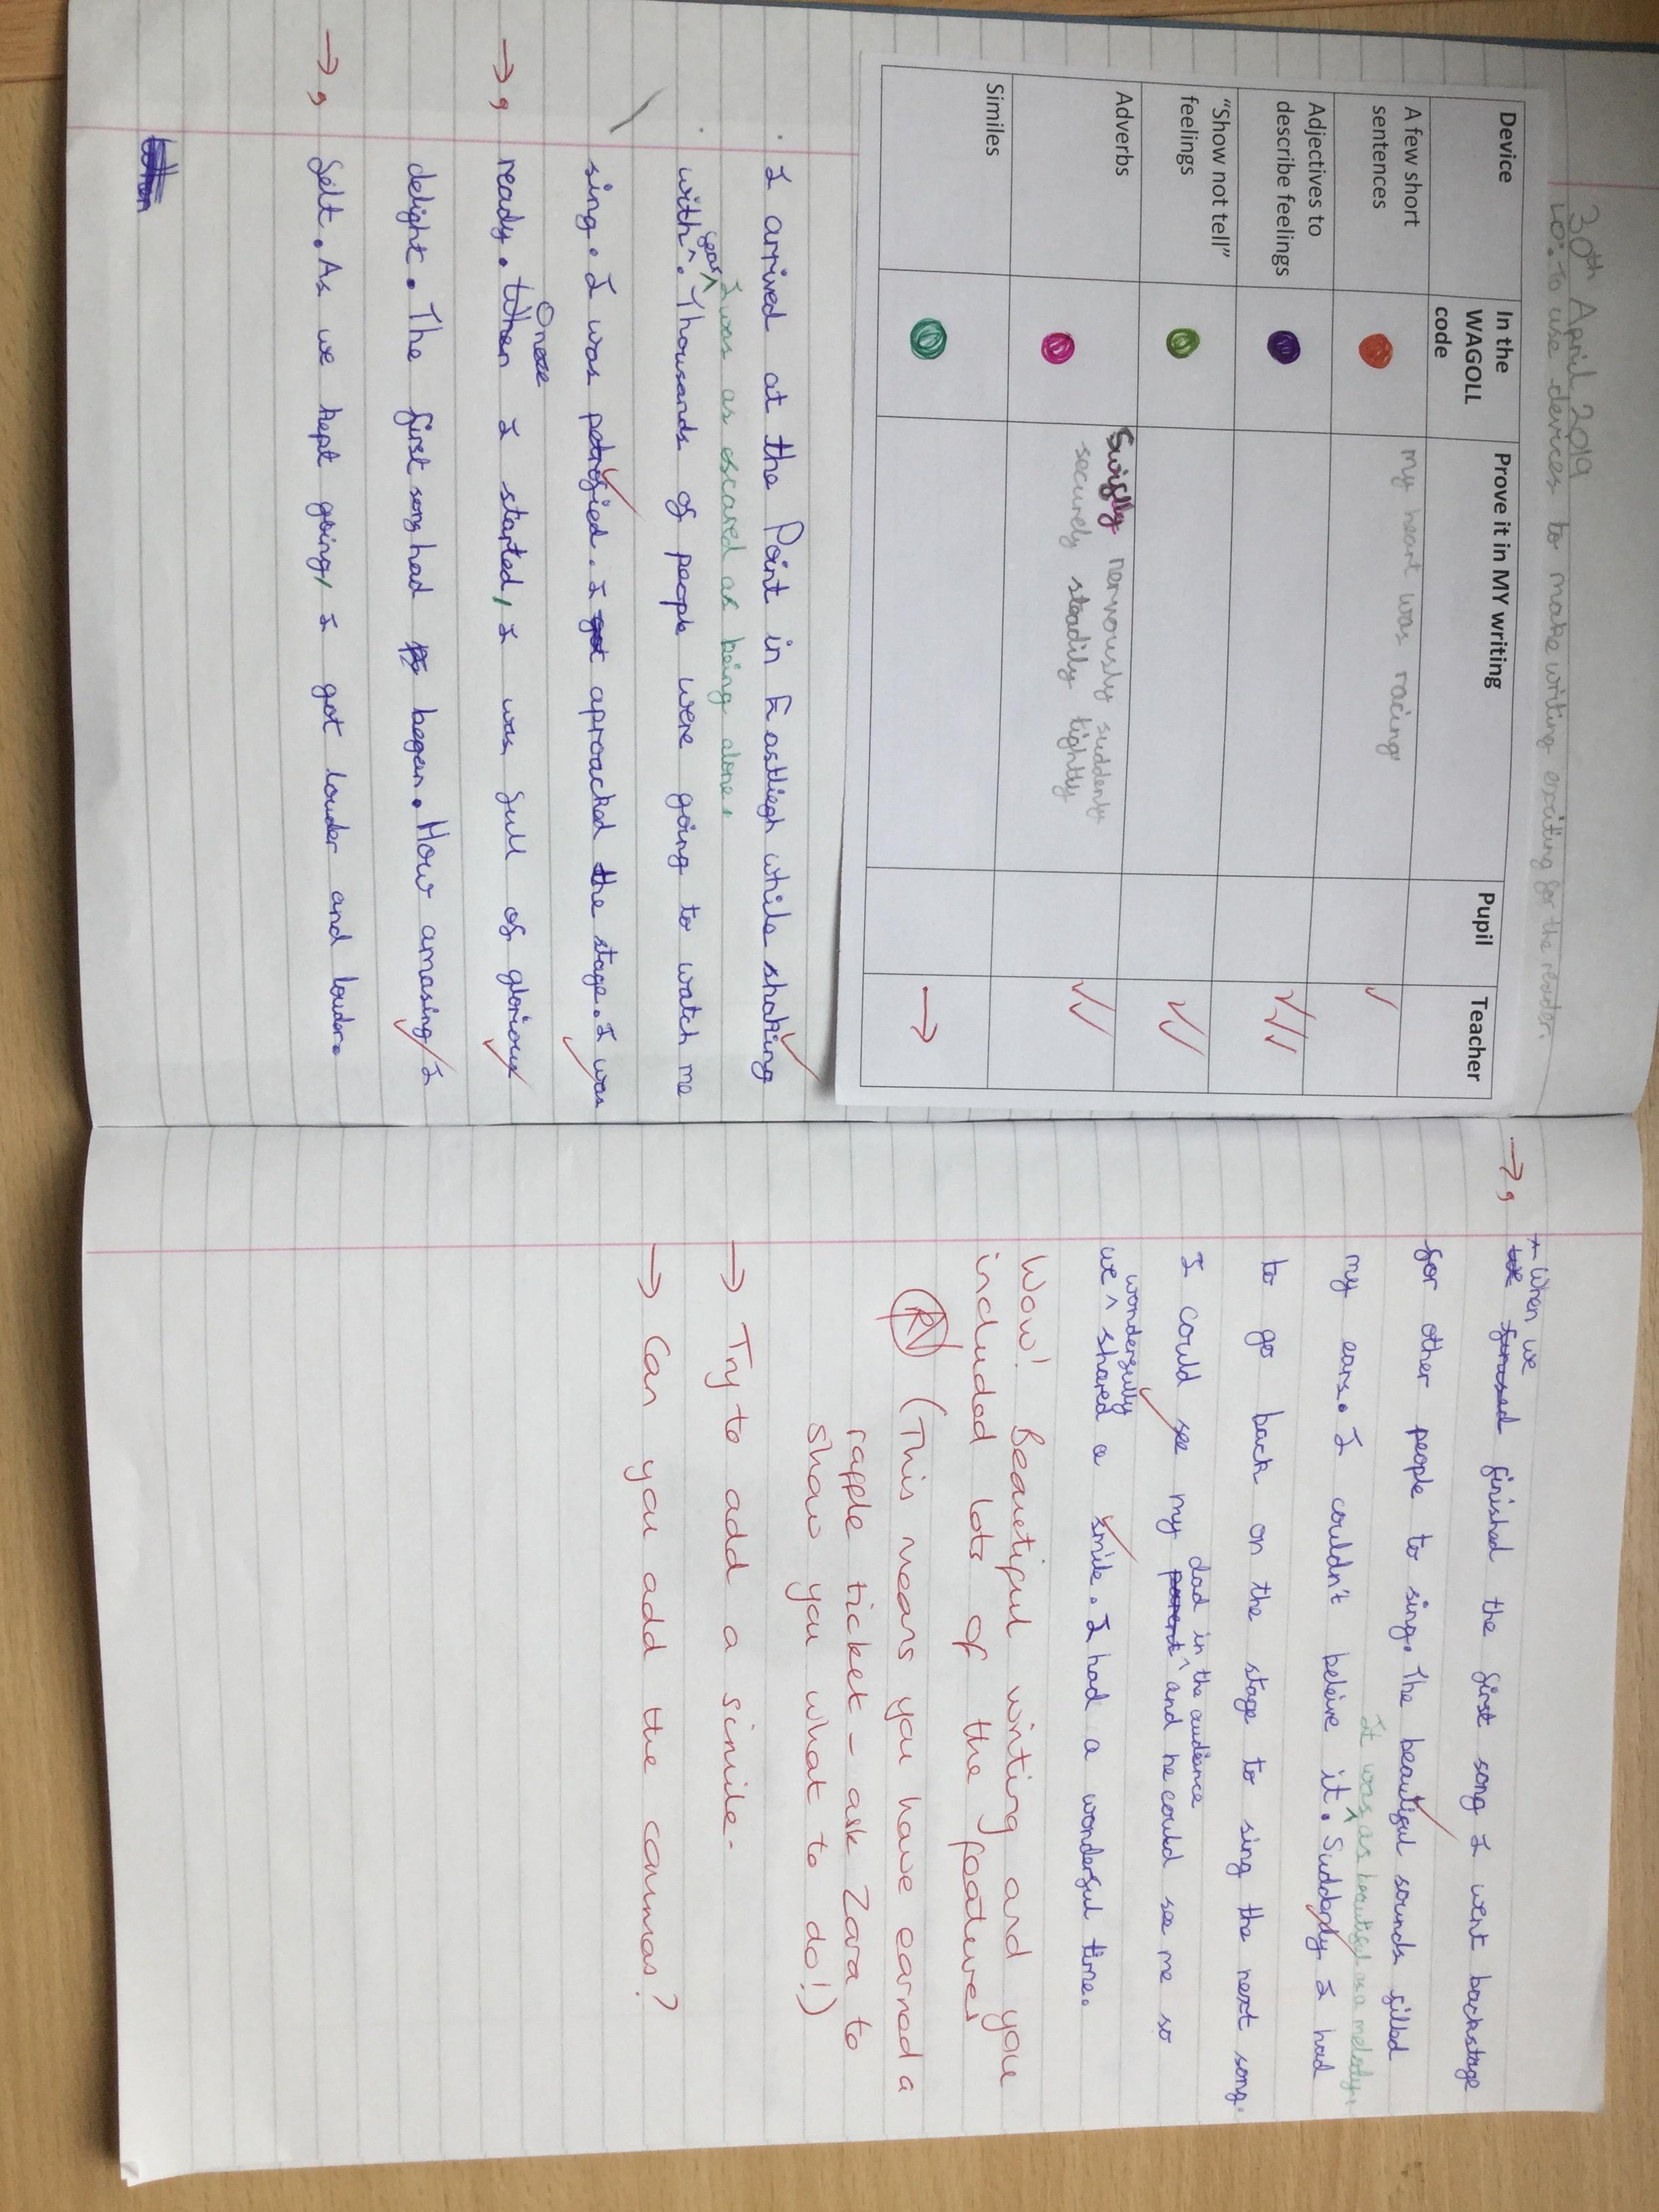 30th April 2019
LO: To use devices to make writing exciting for the reader.
Device In the WAGOLL code Prove it in MY writing Pupil Teacher
A few short sentences my heart was racing
Adjectives to describe feelings
"Show not tell" feelings
Adverbs Swiftly nervously suddenly
securely steadily tightly
Similes
I arrived at the Point in Eastliegh while shaking
I was as escared as being alone.
with fear. Thousands of people were going to watch me
sing. I was petrefied. I got aproached the stage. I was
Once
→ , ready. When I started, I was full of glorious
delight. The first song had began. How amasing I
→ , felt. As we kept going, I got louder and louder.
→ , * When we
finished the first song I went backstage
for other people to sing. The beautiful sounds filled
It was as beautiful as a melody.
my ears. I couldn't beleive it. Suddenly I had
to go back on the stage to sing the next song.
dad in the audience
I could see my parent and he could see me so
wonderfully
we shared a smile. I had a wonderful time.
Wow! Beautiful writing and you
included lots of the features
(This means you have earned a
raffle ticket - ask Zara to
show you what to do!)
→ Try to add a simile.
→ Can you add the commas?